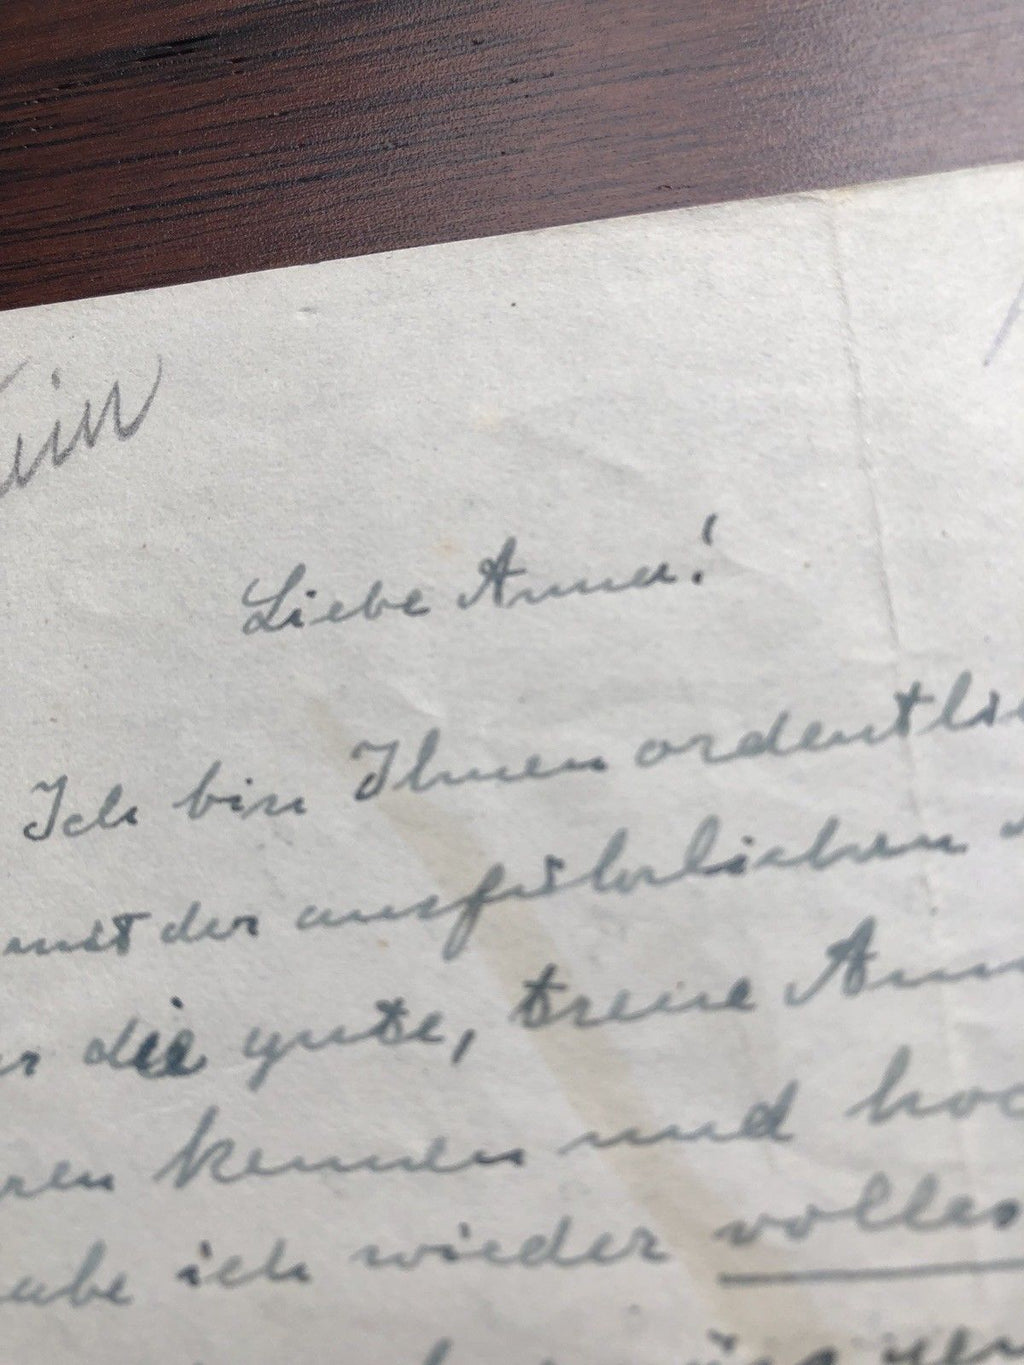 Liebe Anna!
Ich bin Ihnen ordentlic
mit der ausführlichen
die gute, treue Ann
ren kennen und hoc
abe ich wieder volles